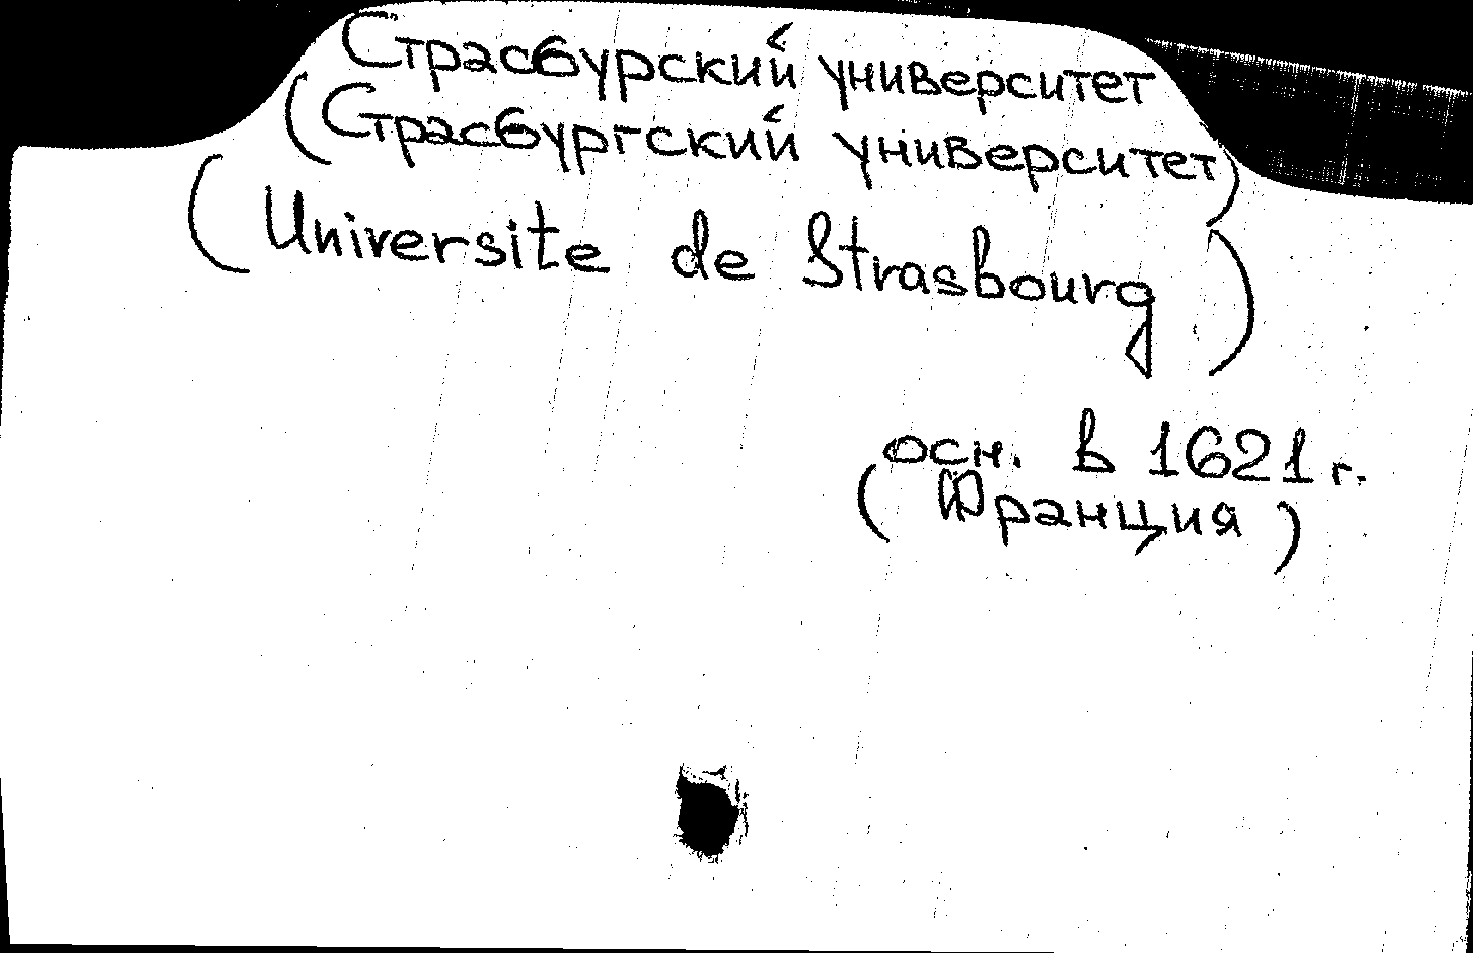 Страсбурский университет
(Страсбургский университет)
(Universite de Strasbourg)
осн. в 1621 г.
(Франция)